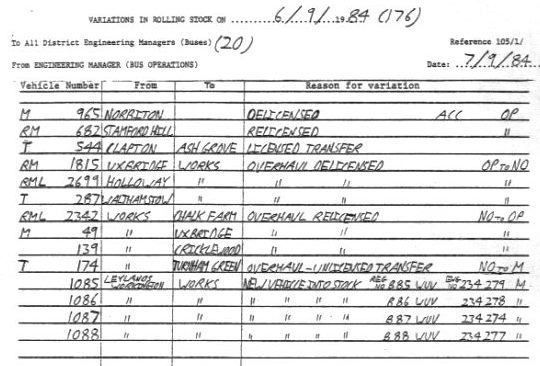 VARIATIONS IN ROLLING STOCK ON 6/9/1984 (176)
To All District Engineering Managers (Buses) (20) Reference 105/1/
From ENGINEERING MANAGER (BUS OPERATIONS) Date: 7/9/84
Vehicle Number From To Reason for variation
M 965 NORBITON DELICENSED ACC OP
RM 682 STAMFORD HILL RELICENSED "
T 544 CLAPTON ASH GROVE LICENSED TRANSFER
RM 1815 UXBRIDGE WORKS OVERHAUL DELICENSED OP TO NO
RML 2699 HOLLOWAY " " " "
T 287 WALTHAMSTOW " " " "
RML 2342 WORKS CHALK FARM OVERHAUL RELICENSED NO TO OP
M 49 " UXBRIDGE " " "
139 " CRICKLEWOOD " " "
T 174 " TURNHAM GREEN OVERHAUL-UNLICENSED TRANSFER NO TO M
1085 LEYLANDS WORKINGTON WORKS NEW VEHICLE INTO STOCK REG NO B85 WUV ENG NO 234279 M
1086 " " " " " " B86 WUV 234278 "
1087 " " " " " " B87 WUV 234274 "
1088 " " " " " " B88 WUV 234277 "